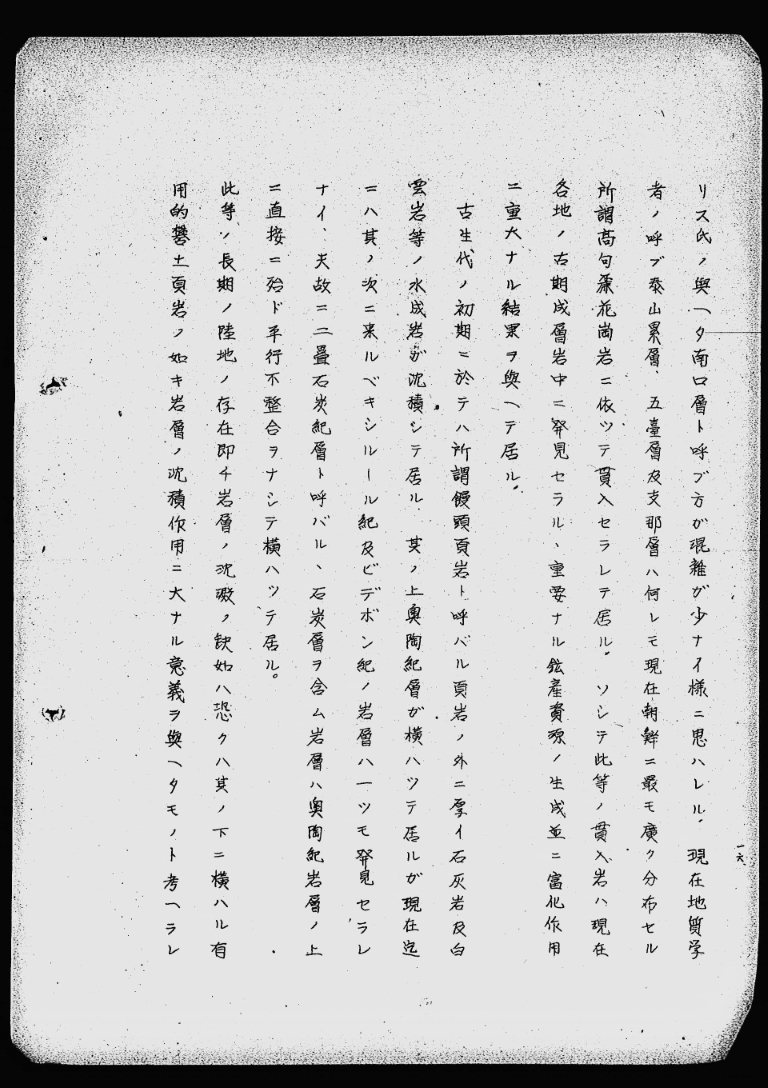 一六
リス氏ノ與ヘタ南口層ト呼ブ方が混雑が少ナイ様ニ思ハレル。現在地質学
者ノ呼ブ泰山累層、五臺層及支那層ハ何レモ現在朝鮮ニ最モ廣ク分布セル
所謂高句麗花崗岩ニ依ツテ貫入セラレテ居ル。ソシテ此等ノ貫入岩ハ現在
各地ノ古期成層岩中ニ発見セラル、重要ナル鉱産資源ノ生成並ニ富化作用
ニ重大ナル結果ヲ與ヘテ居ル。
古生代ノ初期ニ於テハ所謂饅頭頁岩ト呼バル頁岩ノ外ニ厚イ石灰岩及白
雲岩等ノ水成岩が沈積シテ居ル 其ノ上奥陶紀層が横ハツテ居ルが現在迄
ニハ其ノ次ニ来ルベキシルール紀及ビデボン紀ノ岩層ハ一ツモ発見セラレ
ナイ、夫故ニ二疊石炭紀層ト呼バル、石炭層ヲ含ム岩層ハ奥陶紀岩層ノ上
ニ直接ニ殆ド平行不整合ヲナシテ横ハツテ居ル。
此等ノ長期ノ陸地ノ存在即チ岩層ノ沈積ノ缺如ハ恐クハ其ノ下ニ横ハル有
用的礬土頁岩ノ如キ岩層ノ沈積作用ニ大ナル意義ヲ與ヘタモノト考ヘラレ